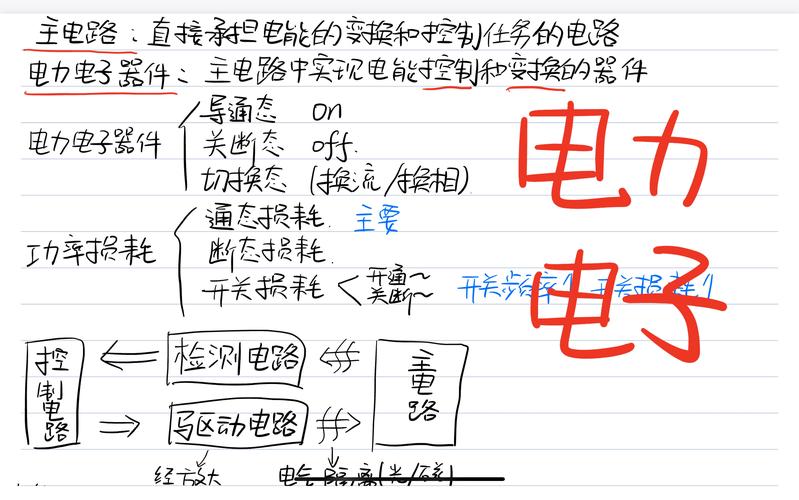 主电路：直接承担电能的变换和控制任务的电路
电力电子器件：主电路中实现电能控制和变换的器件
电力电子器件
导通态 on
关断态 off.
切换态 (换流/换相)
电力
功率损耗
通态损耗. 主要
断态损耗.
开关损耗 < 开通~ 关断~
开关频率↑ 开关损耗↑
电子
控制电路
检测电路
主电路
驱动电路
经放大
电气隔离(光/磁)